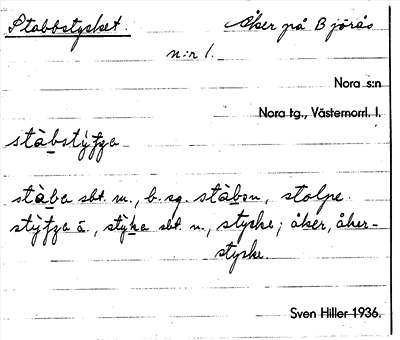 Stabbstycket. Åker på Björås
n:r 1.
Nora s:n
Nora tg., Västernorrl. l.
stàbstỳʒʒa
stàba sbt. m., b. sg. stàben, stolpe.
stỳʒʒa ä., stỳka sbt. n., stycke; åker, åker-
stycke.
Sven Hiller 1936.